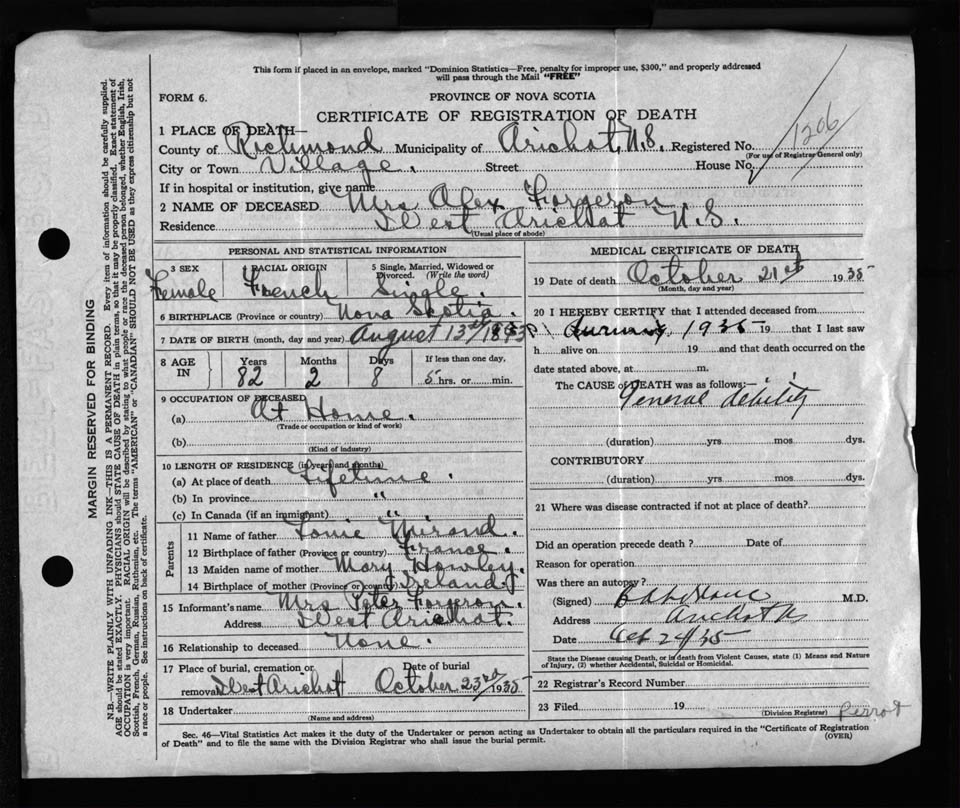 This form if placed in an envelope, marked "Dominion Statistics—Free, penalty for improper use, $300," and properly addressed
will pass through the Mail "FREE"
FORM 6.
PROVINCE OF NOVA SCOTIA
CERTIFICATE OF REGISTRATION OF DEATH
1206
1 PLACE OF DEATH—
County of Richmond Municipality of Arichat, N.S. Registered No.
(For use of Registrar General only)
City or Town Village. Street House No.
If in hospital or institution, give name
2 NAME OF DECEASED Mrs Alex Forgeron
Residence West Arichat N.S.
(Usual place of abode)
PERSONAL AND STATISTICAL INFORMATION
3 SEX RACIAL ORIGIN 5 Single, Married, Widowed or Divorced. (Write the word)
Female French Single.
6 BIRTHPLACE (Province or country) Nova Scotia
7 DATE OF BIRTH (month, day and year) August 13th/1853
8 AGE IN Years Months Days If less than one day,
82 2 8 5 hrs. or min.
9 OCCUPATION OF DECEASED
(a) At Home.
(Trade or occupation or kind of work)
(b)
(Kind of industry)
10 LENGTH OF RESIDENCE (in years and months)
(a) At place of death Lifetime.
(b) In province "
(c) In Canada (if an immigrant) "
Parents
11 Name of father Mirand.
12 Birthplace of father (Province or country) France.
13 Maiden name of mother Mary Howley.
14 Birthplace of mother (Province or country) Ireland
15 Informant's name Mrs Peter Forgeron.
Address West Arichat.
16 Relationship to deceased None.
17 Place of burial, cremation or removal West Arichat Date of burial October 23rd/1935
18 Undertaker
(Name and address)
MEDICAL CERTIFICATE OF DEATH
19 Date of death October 21st 1935
(Month, day and year)
20 I HEREBY CERTIFY that I attended deceased from
1935 19 that I last saw
h alive on 19 and that death occurred on the
date stated above, at m.
The CAUSE of DEATH was as follows:—
General debility
(duration) yrs mos dys.
CONTRIBUTORY
(duration) yrs. mos. dys.
21 Where was disease contracted if not at place of death?
Did an operation precede death? Date of
Reason for operation
Was there an autopsy?
(Signed) M.D.
Address Arichat
Date Oct 24/35
State the Disease causing Death, or in death from Violent Causes, state (1) Means and Nature
of Injury, (2) whether Accidental, Suicidal or Homicidal.
22 Registrar's Record Number
23 Filed 19
(Division Registrar)
Sec. 46—Vital Statistics Act makes it the duty of the Undertaker or person acting as Undertaker to obtain all the particulars required in the "Certificate of Registration
of Death" and to file the same with the Division Registrar who shall issue the burial permit.
(OVER)
MARGIN RESERVED FOR BINDING
N.B.—WRITE PLAINLY WITH UNFADING INK—THIS IS A PERMANENT RECORD. Every item of information should be carefully supplied.
AGE should be stated EXACTLY. PHYSICIANS should STATE CAUSE OF DEATH in plain terms, so that it may be properly classified. Exact statement of
OCCUPATION is very important. RACIAL ORIGIN will be described by stating to what people or race the deceased person belonged, whether English, Irish,
Scottish, French, German, Russian, Ruthenian, etc. The terms "AMERICAN" or "CANADIAN" SHOULD NOT BE USED as they express citizenship but not
a race or people. See instructions on back of certificate.